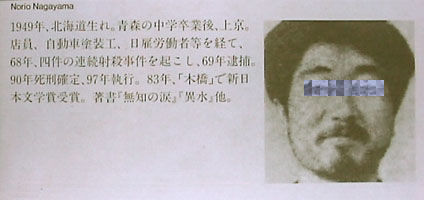 Norio Nagayama
1949年、北海道生れ。青森の中学卒業後、上京。
店員、自動車塗装工、日雇労働者等を経て、
68年、四件の連続射殺事件を起こし、69年逮捕。
90年死刑確定、97年執行。83年、「木橋」で新日
本文学賞受賞。著書『無知の涙』『異水』他。